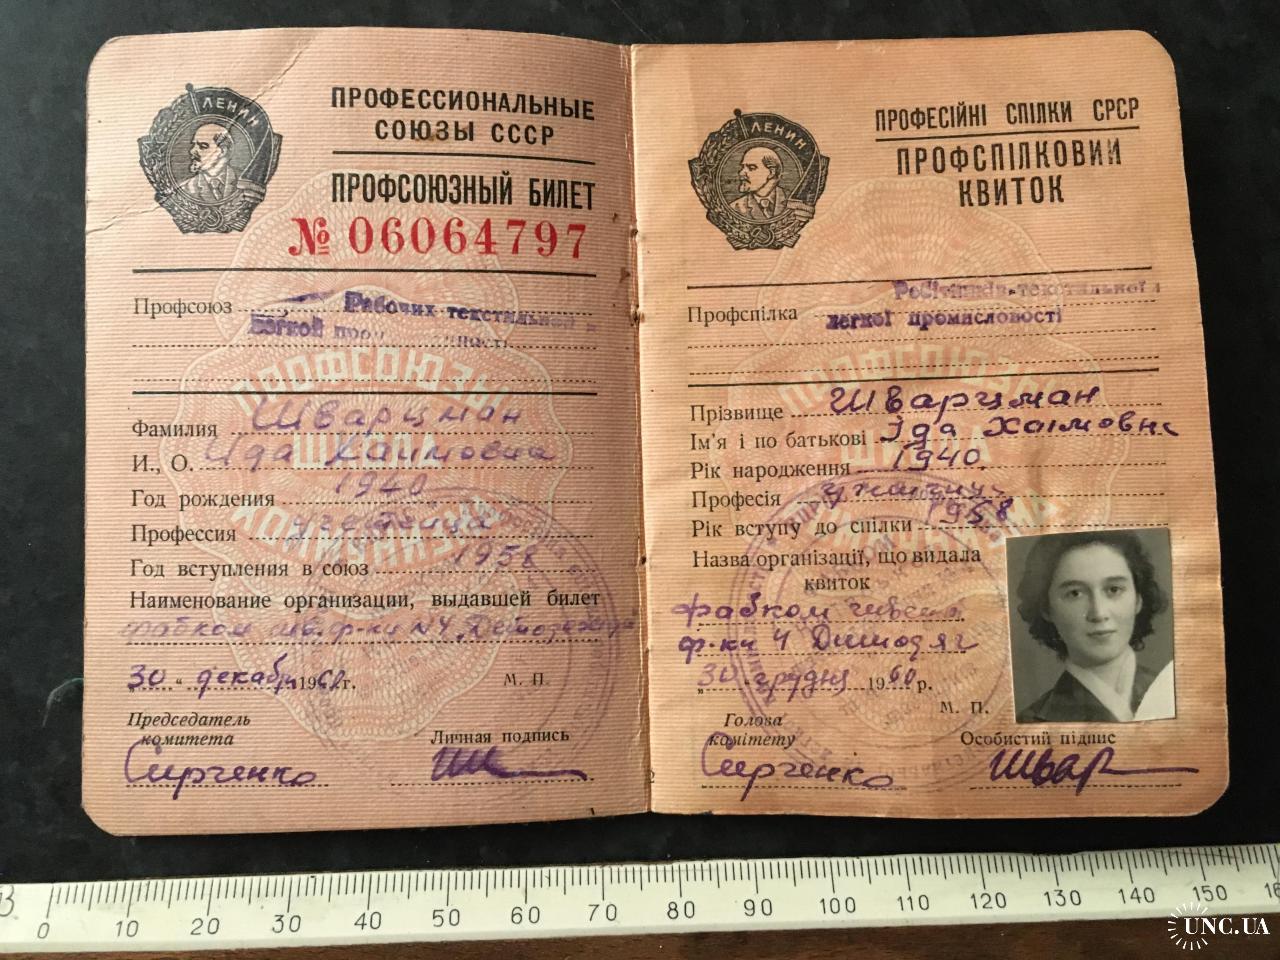 ЛЕНИН
ПРОФЕССИОНАЛЬНЫЕ
СОЮЗЫ СССР
ПРОФСОЮЗНЫЙ БИЛЕТ
№ 06064797
Профсоюз Рабочих текстильной и
легкой
ПРОФСОЮЗЫ
ШКОЛА
КОММУНИЗМА
Фамилия Шварцман
И., О. Ида Хаимовна
Год рождения 1940
Профессия
Год вступления в союз 1958
Наименование организации, выдавшей билет
фабком шв. ф-ки №4
30 " декабр 1960 г.
М. П.
Председатель
комитета
Личная подпись
Сирченко
ЛЕНИН
ПРОФЕСІЙНІ СПІЛКИ СРСР
ПРОФСПІЛКОВИЙ
КВИТОК
Профспілка Робітників текстильної і
легкої промисловості
Прізвище Шварцман
Ім'я і по батькові Іда Хаімовна
Рік народження 1940
Професія
Рік вступу до спілки 1958
Назва організації, що видала
квиток
фабком
ф-ки 4 Дитодяг
„ 30 " грудня 1960 р.
М. П.
Голова
комітету
Особистий підпис
Сирченко
Швар
0 10 20 30 40 50 60 70 80 90 100 110 120 130 140 150
UNC.UA